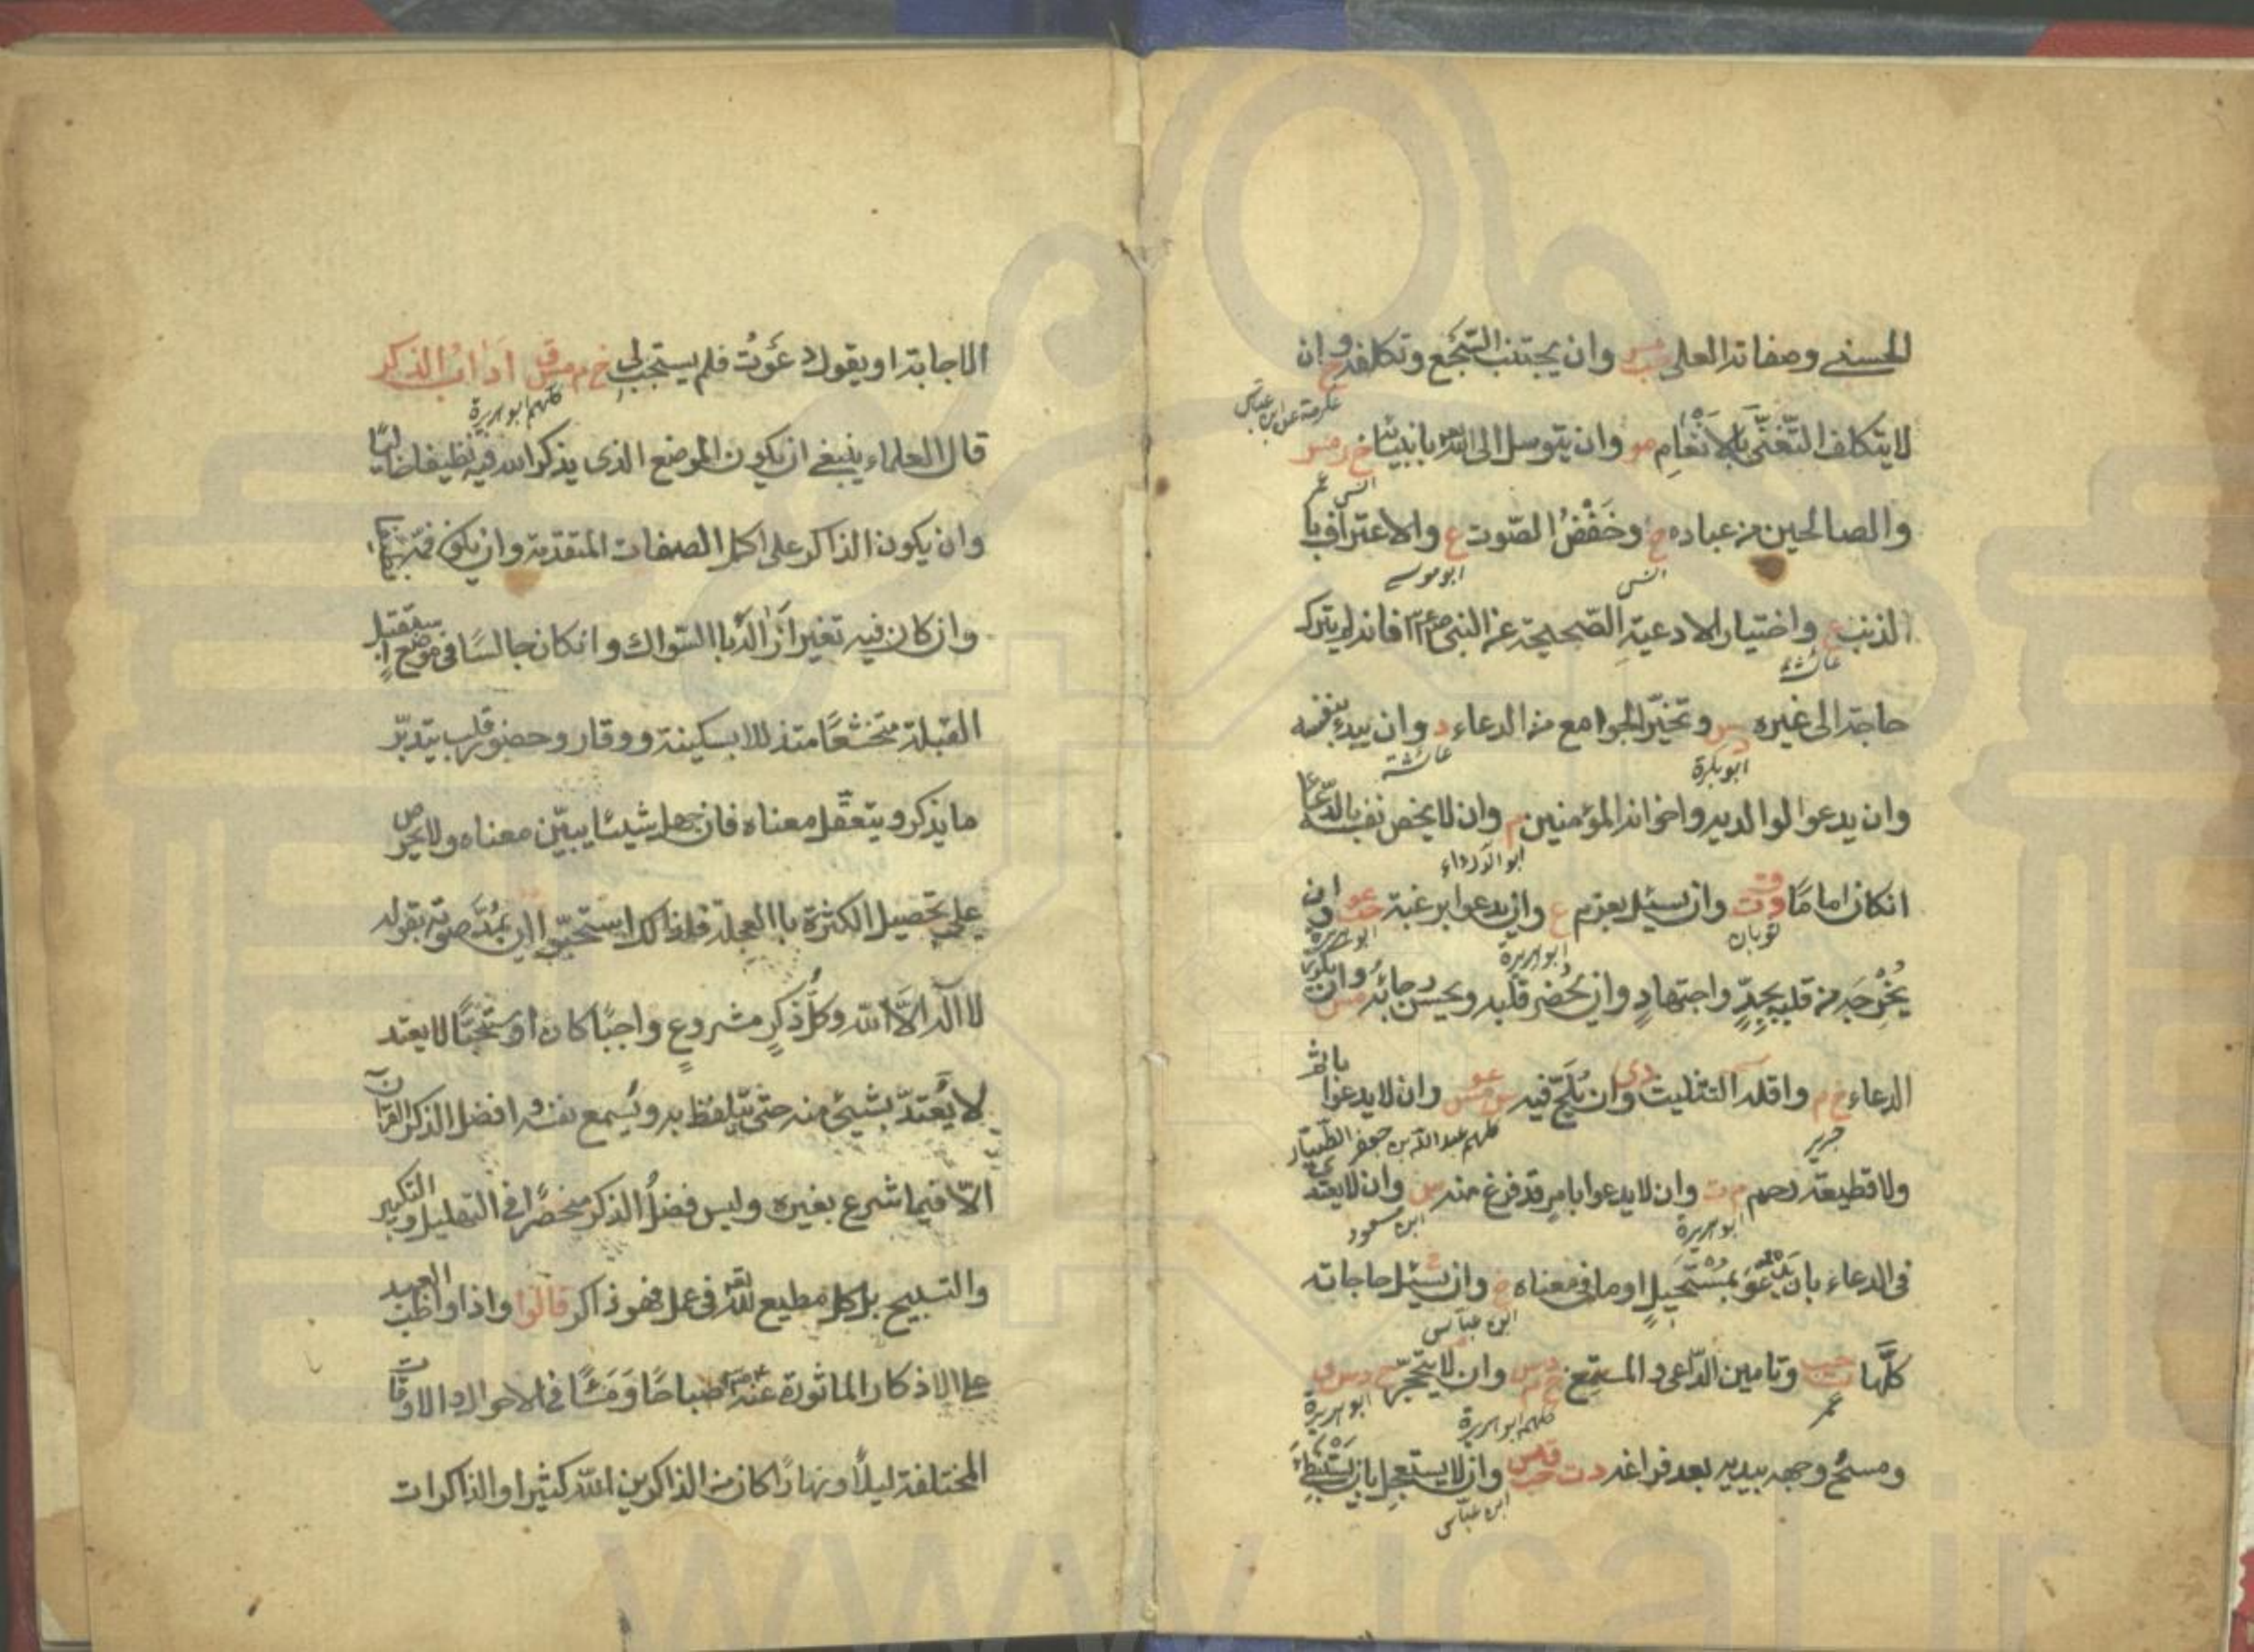 الحسنى وصفاته العلى مس وان يجتنب السَّجَع وتكلفه خ وان
عكرمة عن ابن عباس
لا يتكلف التّغنّى بالانغام مو وان يتوسل الى الله بانبيائه خ ر مس
انس عمر
والصالحين من عباده خ وخَفْضُ الصّوت ع والاعتراف با
انس ابو موسى
الذنب ع واختيار الادعية الصّحيحة عن النبى فانه لم يترك
عائشة
حاجة الى غيره د س وتخيّر الجوامع من الدعاء د وان يبدء بنفسه
ابو بكرة عائشة
وان يدعوا لوالديه واخوانه المؤمنين م وان لا يخص نفسه بالدّعا
ابو الدرداء
انكان امامًا د ت ق وان يسئل بعزم ع وان يدعوا برغبة حب عو وان
ثوبان ابو هريرة ابو هريرة
يُخْرِجَه من قلبه بجِدٍّ واجتهادٍ وان يُحضر قلبه ويحسُن رجائه مس وان يكرر
الدعاء خ م واقله التثليث د ى وان يُلحّ فيه س مس عو وان لا يدعوا باثم
جرير كلهم عبد الله بن جعفر الطّيّار
ولا قطيعة رحم م ت وان لا يدعوا بامرٍ قد فرغ منه س وان لا يعتدى
ابو هريرة ابن مسعود
فى الدعاء بان يَدْعُوَ بمُسْتَحيلٍ او ما فى معناه خ وان يسئل حاجاته
ابن عباس
كلّها ت حب وتامين الدّاعى والمستمع خ م د س وان لا يتحجّر خ د س ق
عمر كلهم ابو هريرة ابو هريرة
ومسحُ وجهه بيديه بعد فراغه د ت حب ق مس وان لا يستعجل بان يَسْتَبْطِئَ
ابن عباس
الاجابة او يقول دعَوْتُ فلم يستجب لى خ م د س ق اداب الذكر
كلهم ابو هريرة
قال العلماء ينبغى ان يكون الموضع الذى يذكر الله فيه نظيفا خاليًا
وان يكون الذاكر على اكمل الصفات المتقدّمة وان يكون فمّه نظيفا
وان كان فيه تغير اَزَالَهُ باالسّواك وانكان جالسًا فى موضع استقبل
القبلة متخشعًا متذللا بسكينة ووقار وحضور قلب يتدبّر
ما يذكر ويتعقّل معناه فان جهل شيئا يبيّن معناه ولا يحرص
على تحصيل الكثرة باالعجلة فلذالك استحبّوا ان يمُدَّ صوته بقوله
لا اله الاّ الله وكلُّ ذكرٍ مشروعٍ واجبًا كان او مستحبًّا لا يعتد
لا يُعتدّ بشيئ منه حتى يتلفظ به ويُسمع نفسه وافضل الذكر القرآن
الاّ فيما شرع بغيره وليس فضلُ الذكر منحصرًا فى التهليل والتكبير
والتسبيح بل كل مطيع لله تعه فى عمل فهو ذاكر قالوا واذا واظب العبد
على الاذكار الماثورة عنه صباحًا ومَسَاءً فى الاحوال والاوقات
المختلفة ليلاً ونهارًا كان من الذاكرين الله كثيرا والذاكرات
www.ical.ir